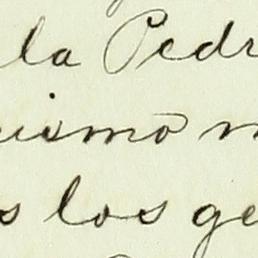 la Pedr
uismo m
s los ge